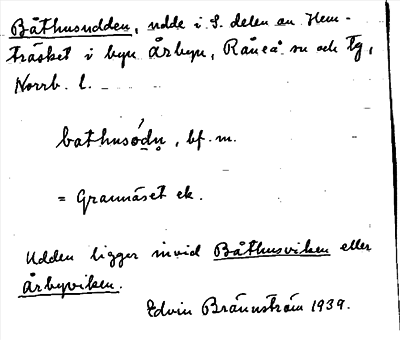 Båthusudden, udde i S. delen av Hem-
träsket i byn Årbyn, Råneå sn och tg,
Norrb. l.
bathusódu̥, bf. m.
= Grannäset ek.
Udden ligger invid Båthusviken eller
Årbyviken.
Edvin Brännström 1939.